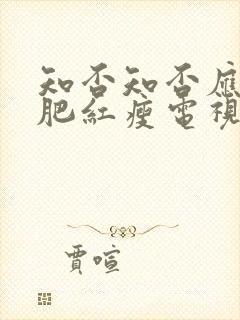 知否知否應
肥紅瘦電視
賈喧